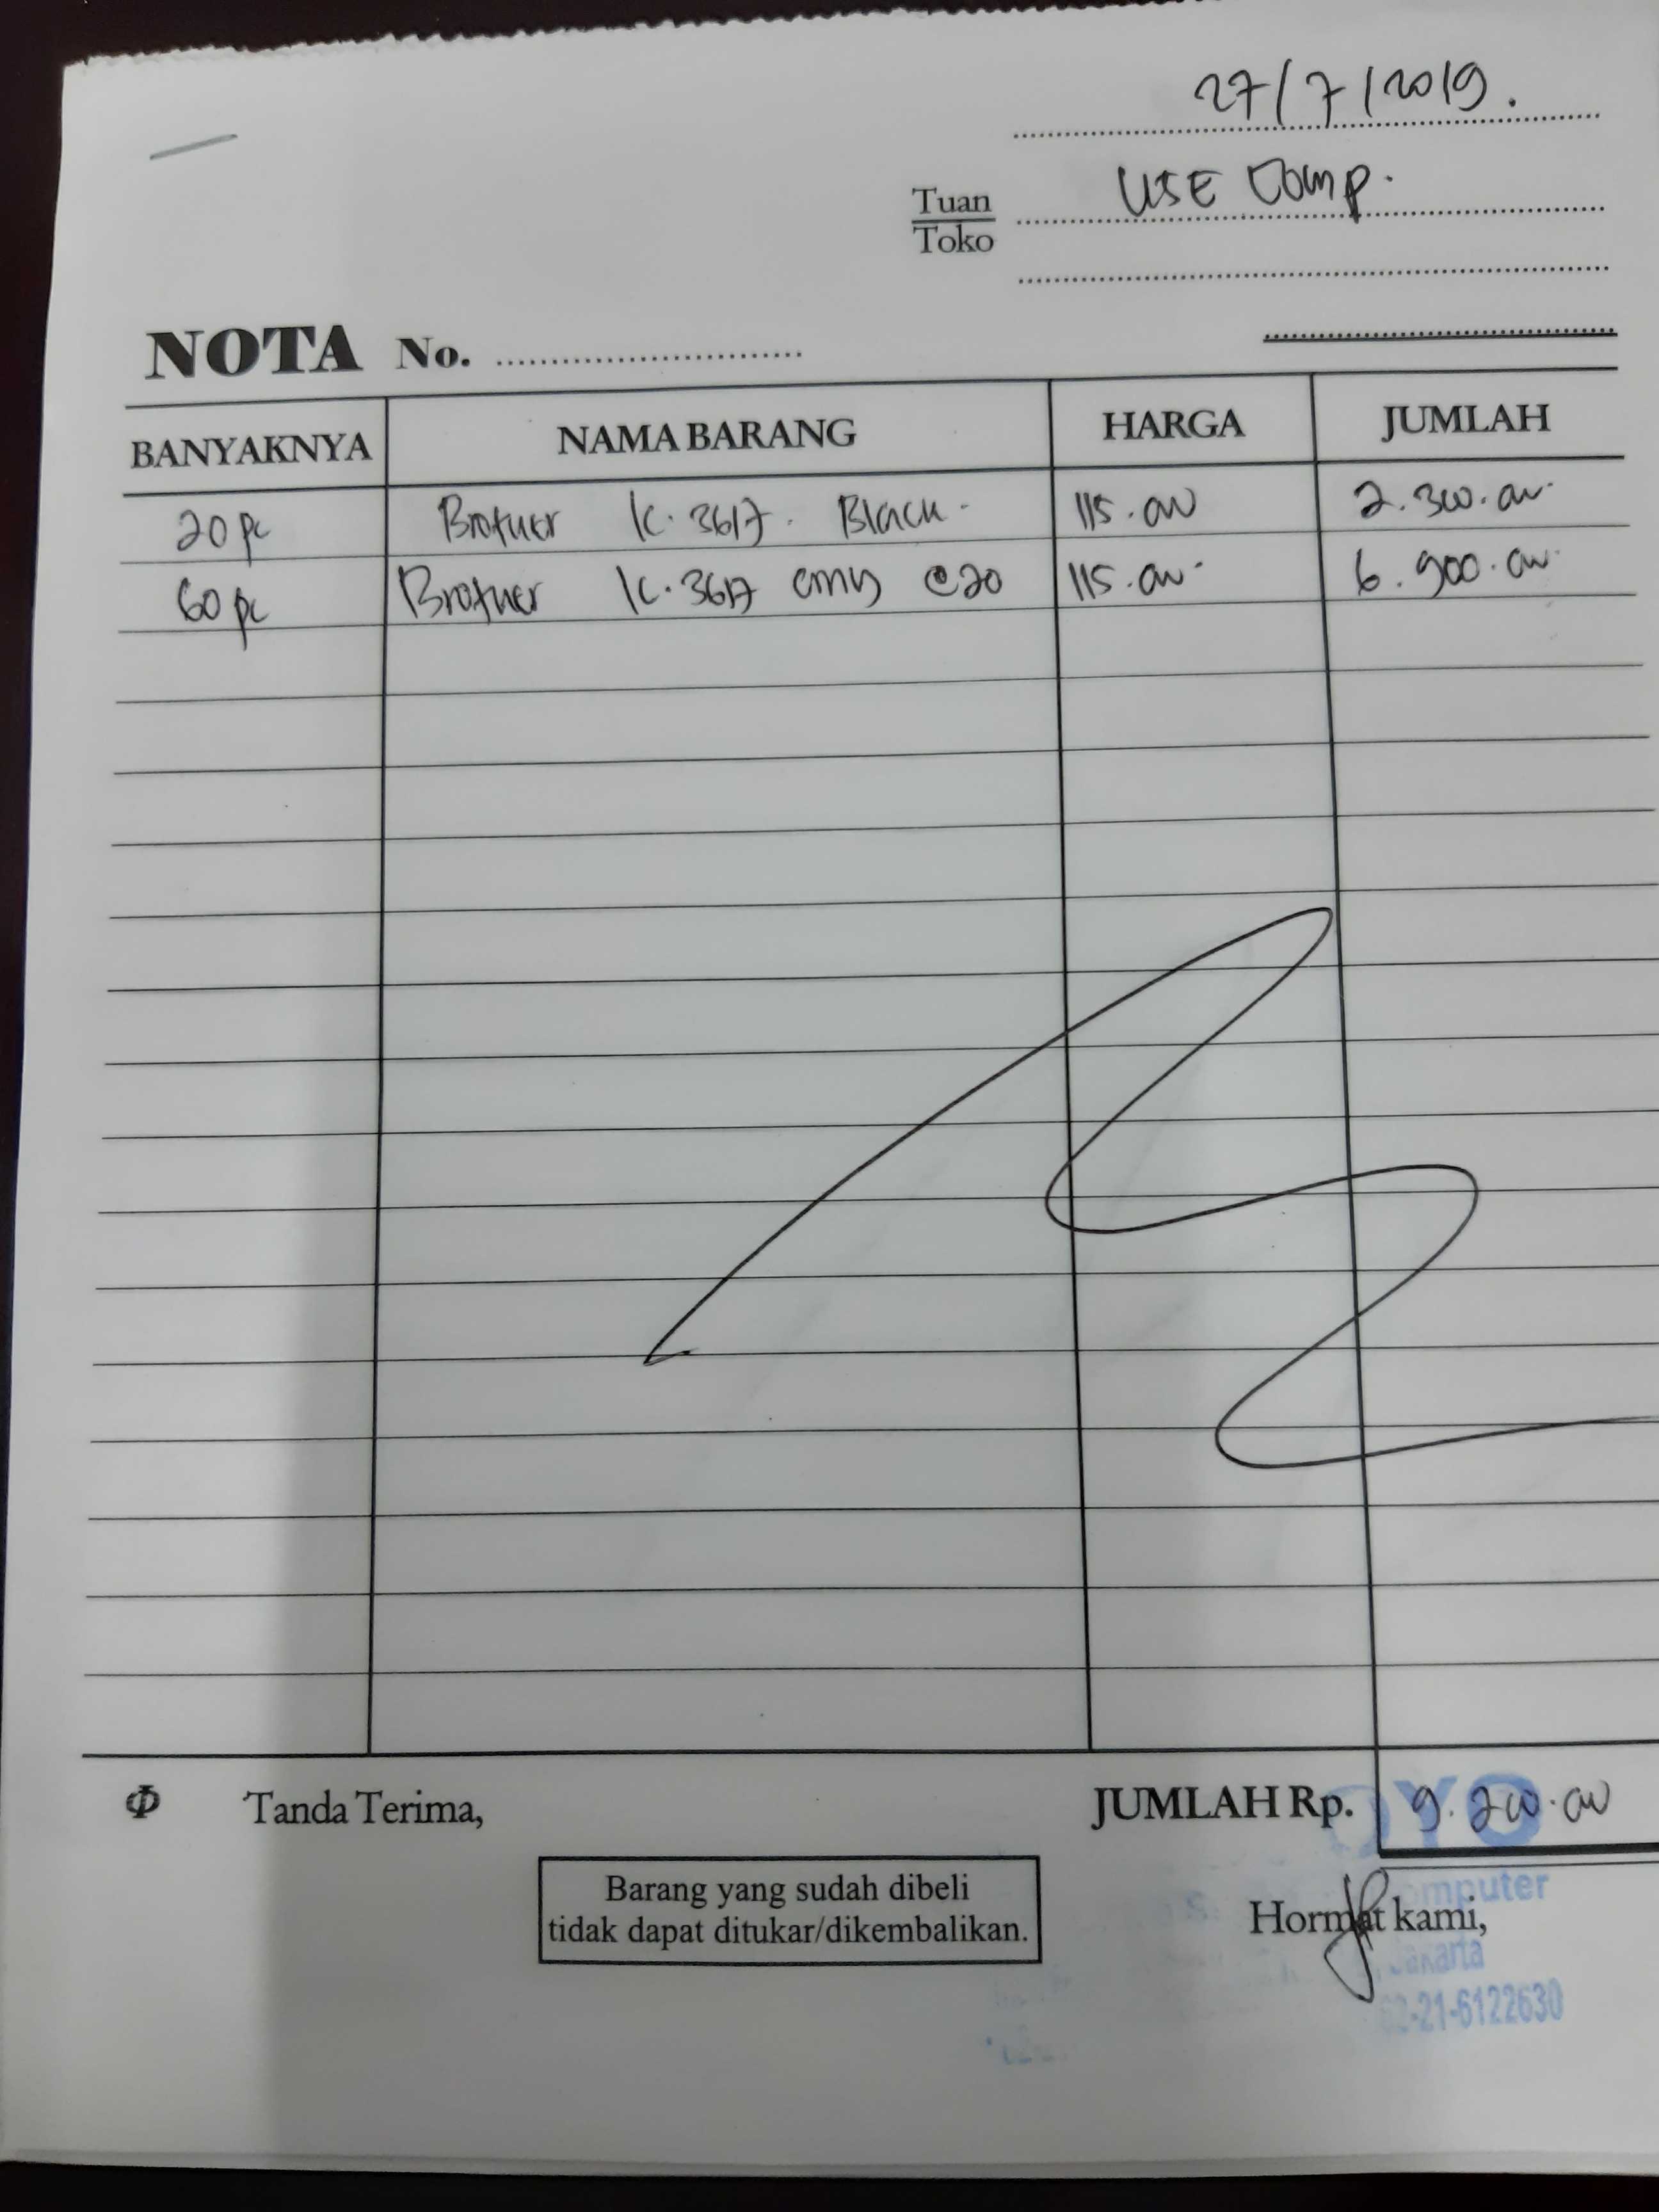 27/7/2019.
Tuan
Toko
USE Comp.
NOTA No.
BANYAKNYA NAMA BARANG HARGA JUMLAH
20 pc Brother lc.3617. Black. 115.000 2.300.000
60 pc Brother lc.3617 cmy @20 115.000 6.900.000
Φ Tanda Terima, JUMLAH Rp. 9.200.000
OYO
Barang yang sudah dibeli
tidak dapat ditukar/dikembalikan.
Hormat kami,
omputer
Jakarta
62-21-6122630